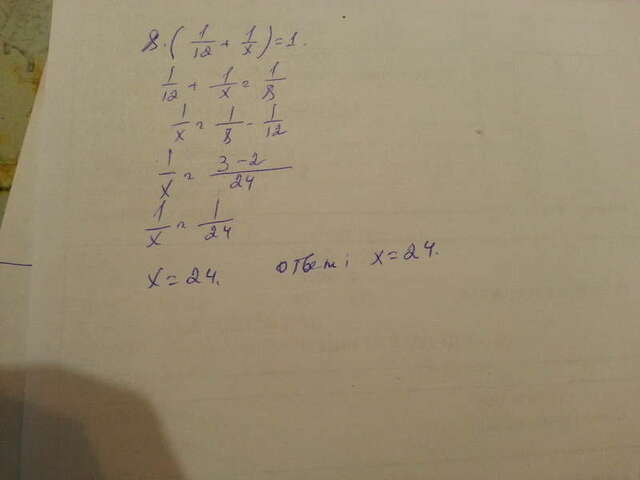 8·(1/12 + 1/x)=1.
1/12 + 1/x = 1/8
1/x = 1/8 - 1/12
1/x = 3-2/24
1/x = 1/24
x=24. ответ: x=24.